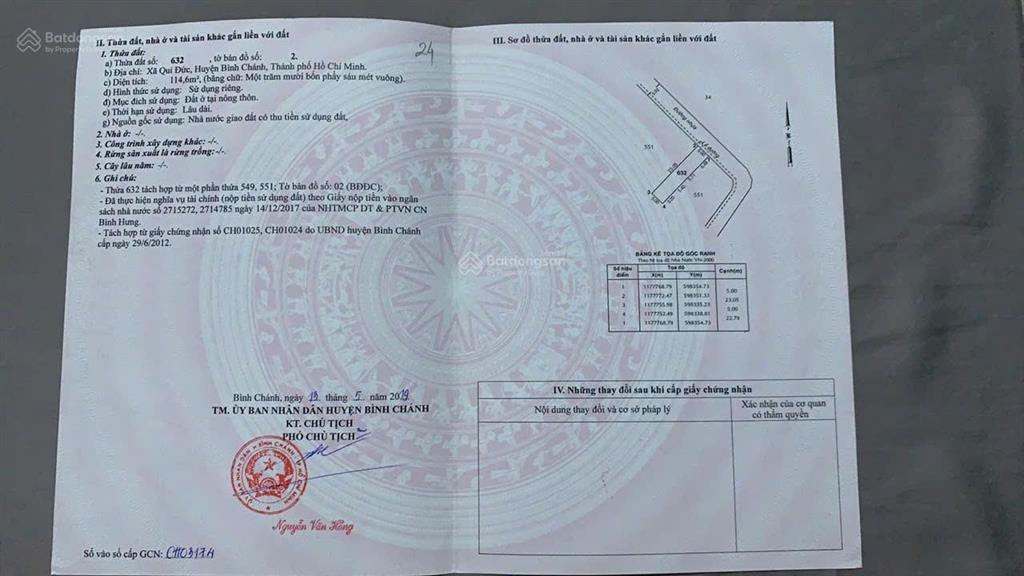 Batdongsan
by PropertyGuru
II. Thửa đất, nhà ở và tài sản khác gắn liền với đất
24
1. Thửa đất:
a) Thửa đất số: 632 , tờ bản đồ số: 2.
b) Địa chỉ: Xã Qui Đức, Huyện Bình Chánh, Thành phố Hồ Chí Minh.
c) Diện tích: 114,6m², (bằng chữ: Một trăm mười bốn phẩy sáu mét vuông).
d) Hình thức sử dụng: Sử dụng riêng.
đ) Mục đích sử dụng: Đất ở tại nông thôn.
e) Thời hạn sử dụng: Lâu dài.
g) Nguồn gốc sử dụng: Nhà nước giao đất có thu tiền sử dụng đất,
2. Nhà ở: -/-.
3. Công trình xây dựng khác: -/-.
4. Rừng sản xuất là rừng trồng: -/-.
5. Cây lâu năm: -/-.
6. Ghi chú:
- Thửa 632 tách hợp từ một phần thửa 549, 551; Tờ bản đồ số: 02 (BĐĐC);
- Đã thực hiện nghĩa vụ tài chính (nộp tiền sử dụng đất) theo Giấy nộp tiền vào ngân
sách nhà nước số 2715272, 2714785 ngày 14/12/2017 của NHTMCP DT & PTVN CN
Bình Hưng.
- Tách hợp từ giấy chứng nhận số CH01025, CH01024 do UBND huyện Bình Chánh
cấp ngày 29/6/2012.
Bình Chánh, ngày 13 tháng 5 năm 2019
TM. ỦY BAN NHÂN DÂN HUYỆN BÌNH CHÁNH
KT. CHỦ TỊCH
PHÓ CHỦ TỊCH
Nguyễn Văn Hồng
Số vào sổ cấp GCN: CH03174
III. Sơ đồ thửa đất, nhà ở và tài sản khác gắn liền với đất
34
Đường nhựa
551
632
551
BẢNG KÊ TỌA ĐỘ GÓC RANH
Theo hệ tọa độ Nhà Nước VN-2000
Số hiệu điểm Tọa độ Cạnh(m)
X(m) Y(m)
1 1177768.79 598354.73
5.00
2 1177772.47 598351.33
23.05
3 1177755.98 598335.23
5.00
4 1177752.49 598338.81
22.79
1 1177768.79 598354.73
Batdongsan
by PropertyGuru
IV. Những thay đổi sau khi cấp giấy chứng nhận
Nội dung thay đổi và cơ sở pháp lý
Xác nhận của cơ quan
có thẩm quyền
Batdongsan
by PropertyGuru